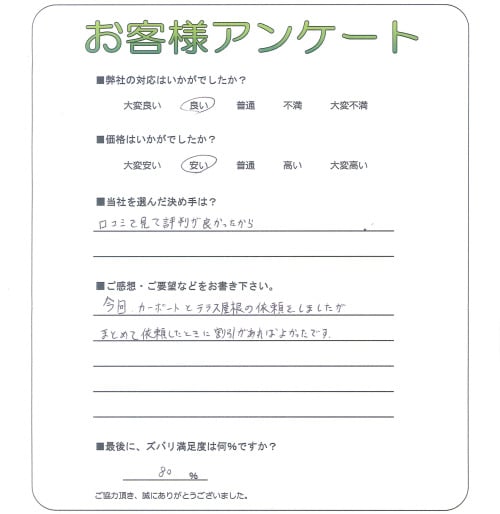 お客様アンケート
■弊社の対応はいかがでしたか？
大変良い 良い 普通 不満 大変不満
■価格はいかがでしたか？
大変安い 安い 普通 高い 大変高い
■当社を選んだ決め手は？
口コミで見て評判が良かったから
■ご感想・ご要望などをお書き下さい。
今回、カーポートとテラス屋根の依頼をしましたが
まとめて依頼したときに割引があればよかったです。
■最後に、ズバリ満足度は何％ですか？
80 ％
ご協力頂き、誠にありがとうございました。